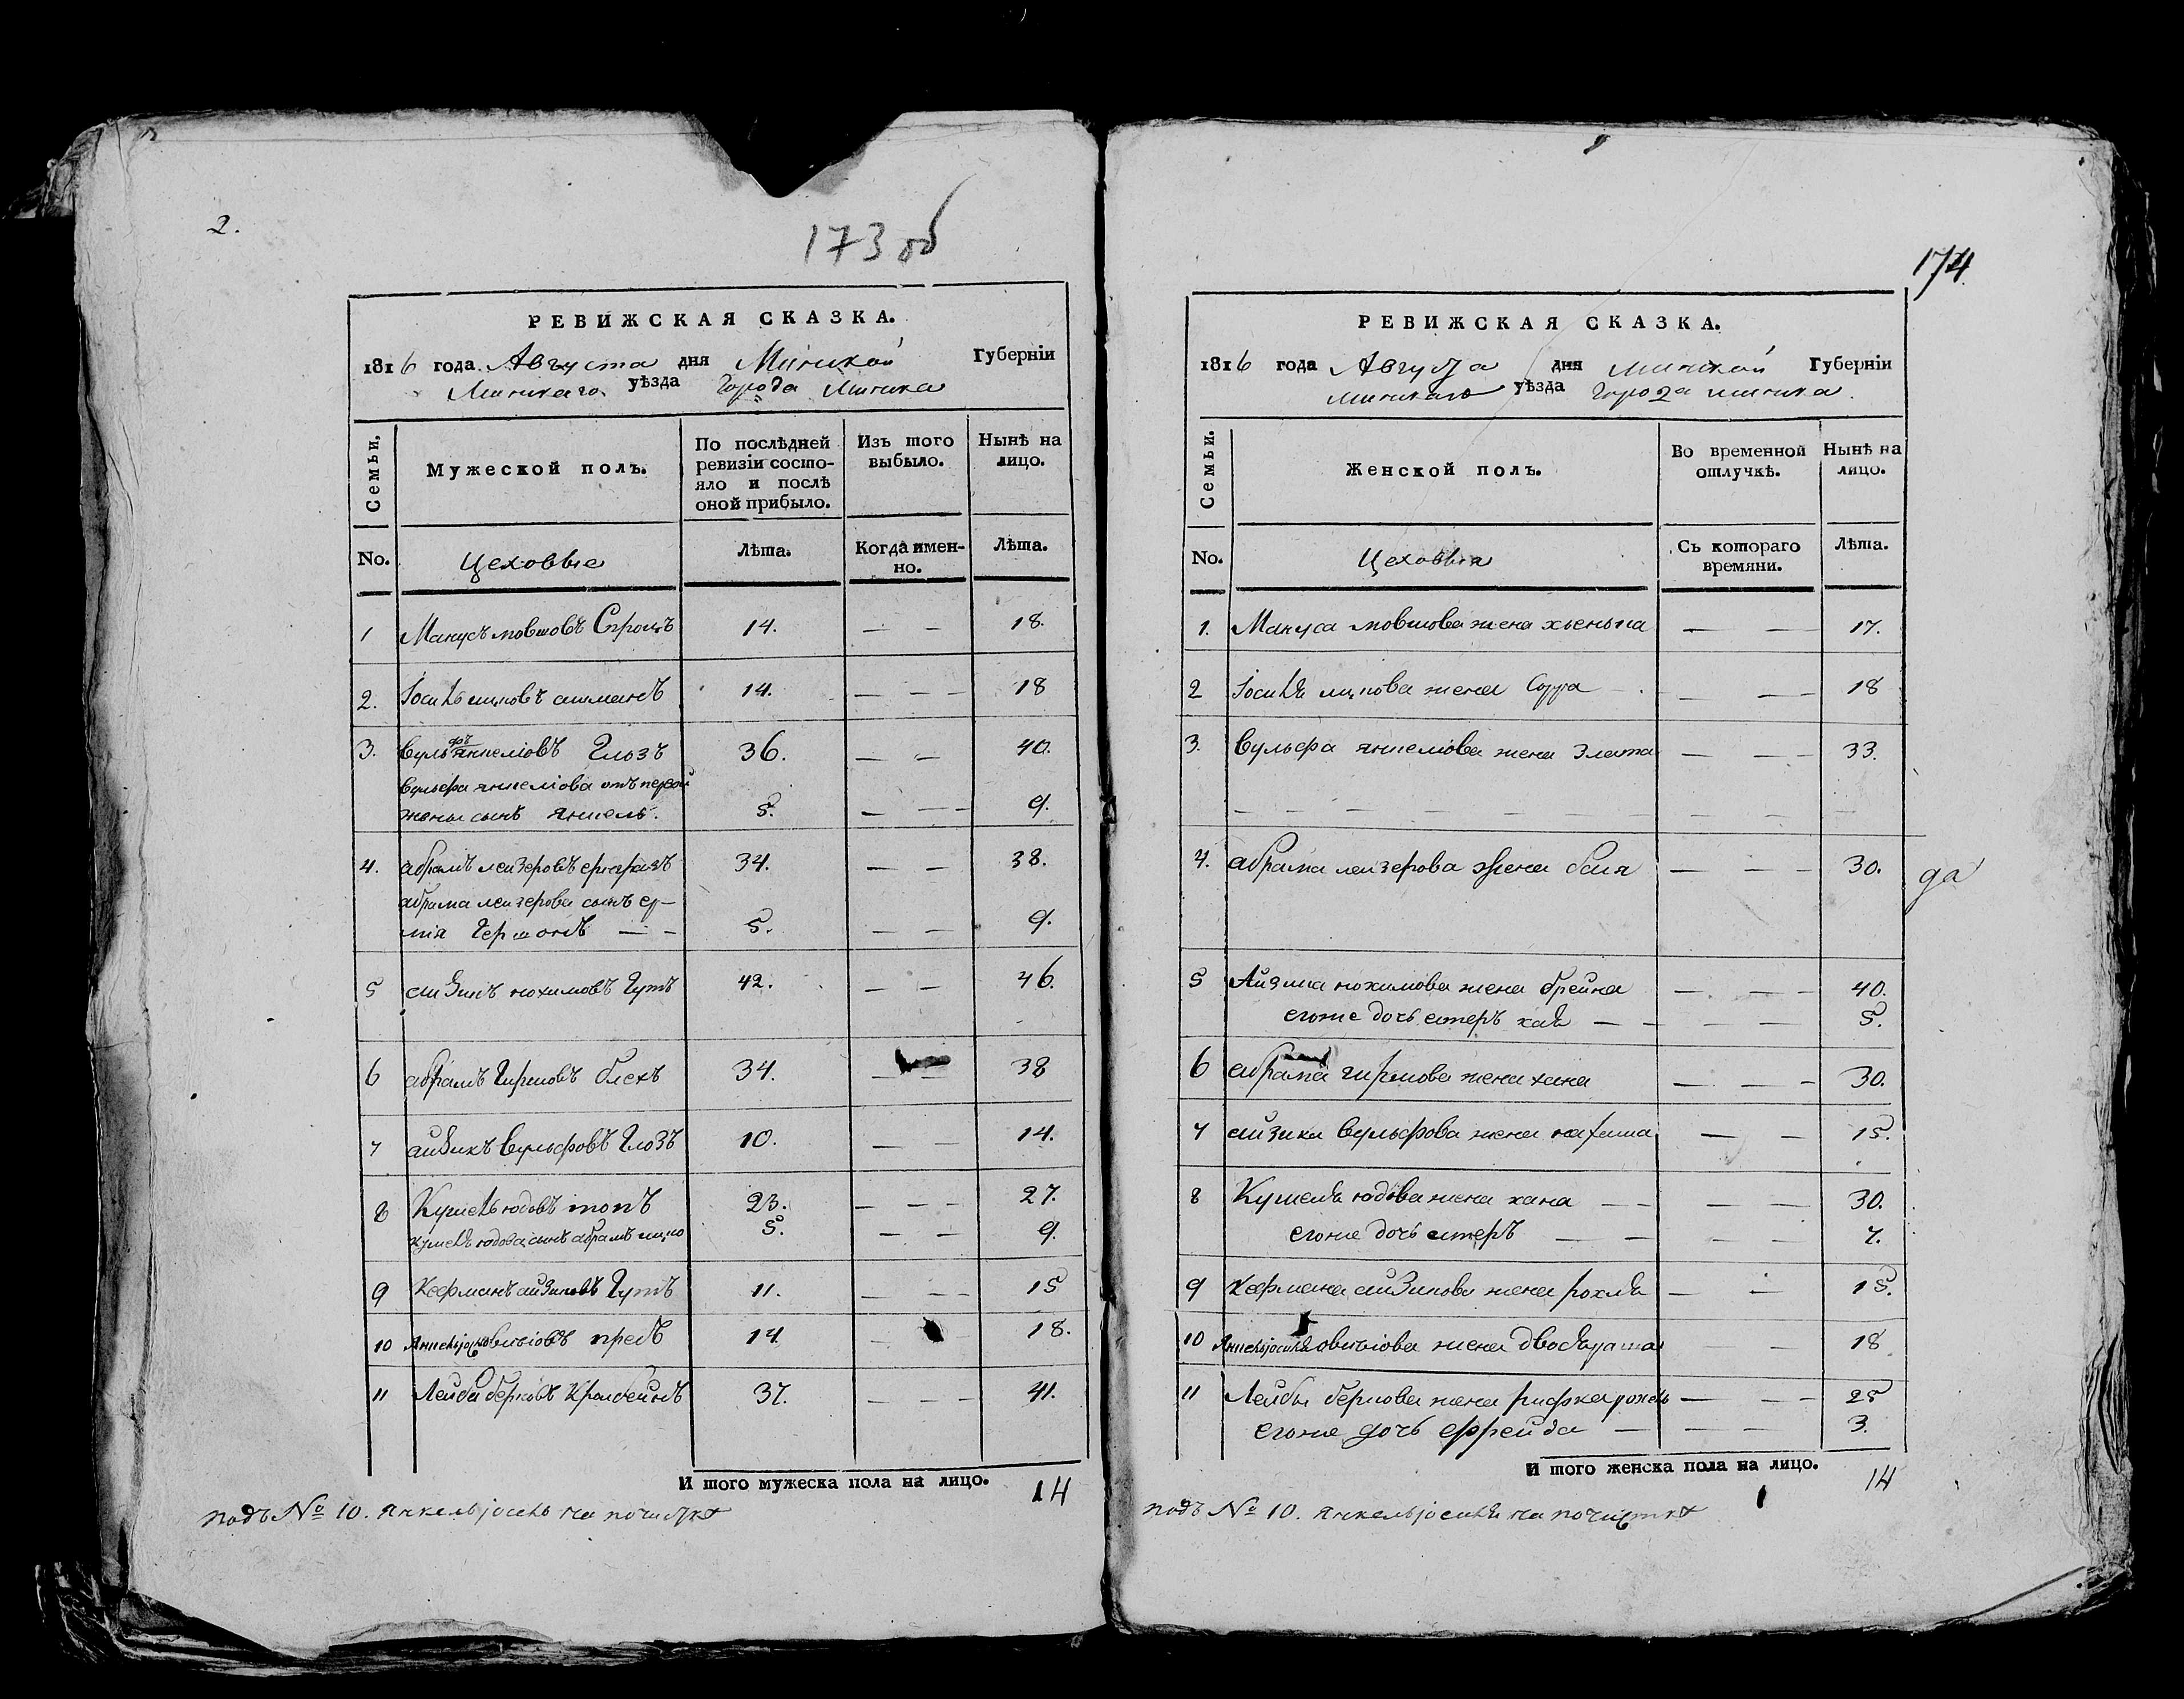 2.
173 об
РЕВИЖСКАЯ СКАЗКА.
1816 года Августа дня Минской Губерніи
Минскаго уѣзда Города Минска
Семьи.
Мужеской полъ.
По послѣдней ревизіи состояло и послѣ оной прибыло.
Изъ того выбыло.
Нынѣ на лицо.
No.
Цеховые
Лѣта.
Когда именно.
Лѣта.
1 Манусъ мовшовъ 14. — — 18.
2. 14. — — — 18
3. Вульфъ янкеліовъ Глозъ 36. — — 40.
Вульфа янкеліова отъ первой
жены сынъ янкель. 5. — — — 9.
4. абрамъ лейзеровъ 34. — — 38.
абрама лейзерова сынъ ер-
Гершонъ — — 5. — — 9.
5 айзикъ нохимовъ Гутъ 42. — — 46.
6 абрамъ Гиршовъ блехъ 34. — — 38
7 айзикъ Вульфовъ Глозъ 10. — — 14.
8 Кушель юдовъ топъ 23. — — — 27.
Кушеля юдова сынъ абрамъ ицко 5. — — 9.
9 Кофманъ айзиковъ Гутъ 11. — — — 15
10 14 — 18.
11 Лейба берковъ 37. — — — 41.
И того мужеска пола на лицо. 14
подъ № 10. Янкель іосель на почистке
174.
РЕВИЖСКАЯ СКАЗКА.
1816 года Августа дня Минской Губерніи
Минскаго уѣзда Города минска.
Семьи.
Женской полъ.
Во временной отлучкѣ.
Нынѣ на лицо.
No.
Цеховыя
Съ котораго времяни.
Лѣта.
1. Мануса мовшова жена хьенька — — 17.
2 Іоселя ицкова жена Сорра — — — 18
3. Вульфа янкеліова жена Злата — — — 33.
— — — — — — — — — —
4. абрама лейзерова жена бася — — — 30. да
5 Айзика нохимова жена брейна — — — 40.
егоже дочь естеръ хая — — — — 5.
6 абрама гиршова жена хана — — — 30.
7 айзика Вульфова жена — — 15.
8 Кушеля юдова жена хана — — — — 30.
егоже дочь естеръ — — — — 7.
9 Кофмана айзикова жена рохля — — 15.
10 жена — 18
11 Лейбы беркова жена рифка рохель — — — 25
егоже дочь ффейда — — — 3.
И того женска пола на лицо. 14
подъ № 10. Янкель іоселя на почистке